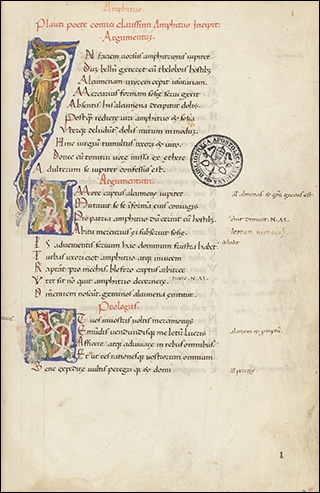 Amphitrio
1
Plauti poete comici clarissimi Amphitrio Incipit:
Argumentum:
In faciem uersus amphitrionis iupiter
Dum bellum gereret cum thelobois hostibus
Alcmenam uxorem cepit usurariam
Mercurius formam sosie serui gerit
Absentis his alcumena decipitur dolis.
Postquam rediere ueri amphitrio et sosia
Vterque deluduntur dolis mirum in modum.
Hinc iurgium tumultus uxori et uiro.
Donec cum tonitru uoce missa ex ethere
Adulterum se iupiter confessus est.
Argumentum.
Amore captus alcumene iupiter
Mutauit sese in formam eius coniugis
Pro patria amphitruo dum cernit cum hostibus
Habitu mercurius ei subseruit sosie.
Is aduenientis seruum hac dominum frustra habet
Turbas uxori ciet amphitrio. atque inuicem
Raptant pro moechis. blefaro captus arbiter
Vter sit non quit amphitrio decernere.
Omnem rem noscunt. geminos alcumena enititur.
Prologus.
uos in uostris uoltis mercimoniis
Emundis uendundisque me letum lucris
Afficere. atque adiuuare in rebus omnibus
Et ut res rationesque uostrorum omnium
Bene expedire uultis peregri que et domi
1